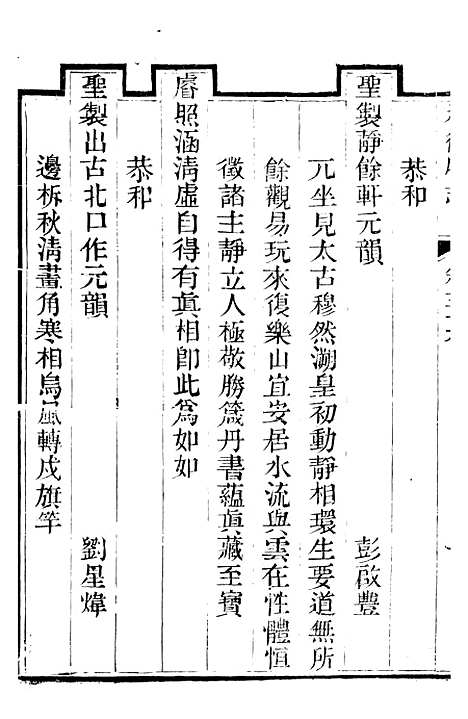 恭和
聖製靜餘軒元韻　彭啟豐
兀坐見太古穆然溯皇初動靜相環生要道無所
餘觀易玩來復樂山宜安居水流與雲在性體恒
徵諸主靜立人極敬勝箴丹書蘊真藏至寶
睿照涵清虛自得有真相卽此為如如
恭和
聖製出古北口作元韻　劉星煒
邊柝秋淸畫角寒相烏風轉戍旗竿